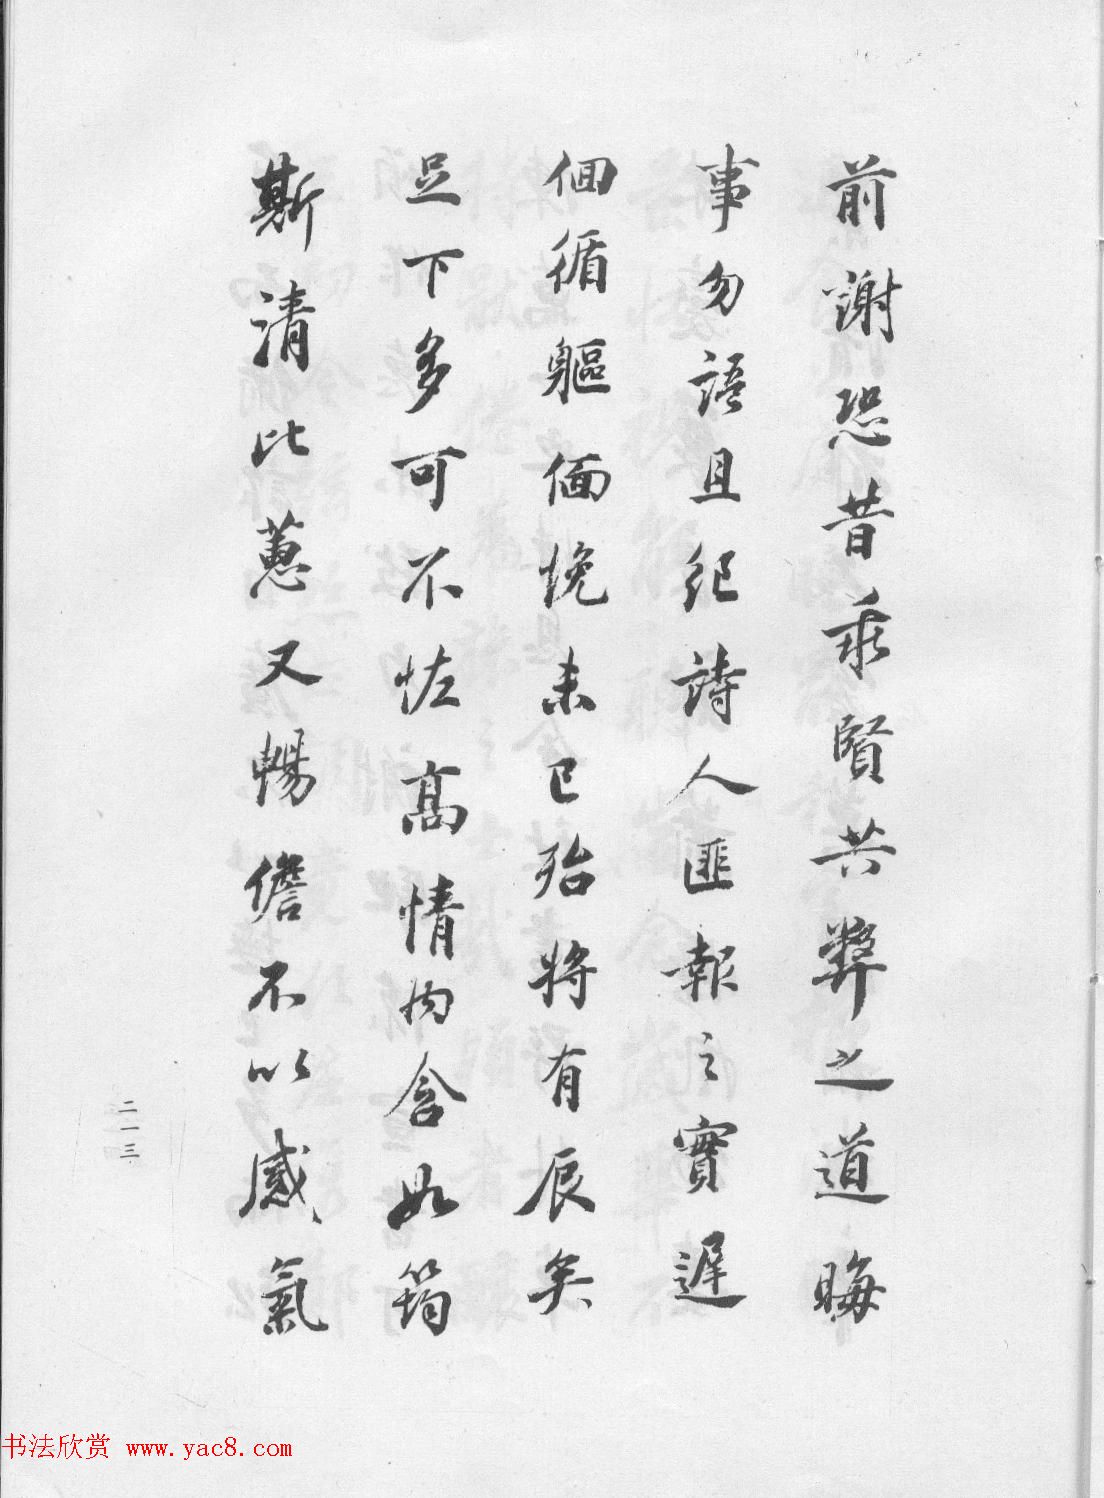 前謝恐昔乖賢共弊之道晦
事勿語且紀詩人匪報之實遲
佪循軀偭悗未已殆將有辰矣
足下多可不恠高情内含如筠
斯清比蕙又暢儋不以感氣
二一三
书法欣赏 www.yac8.com